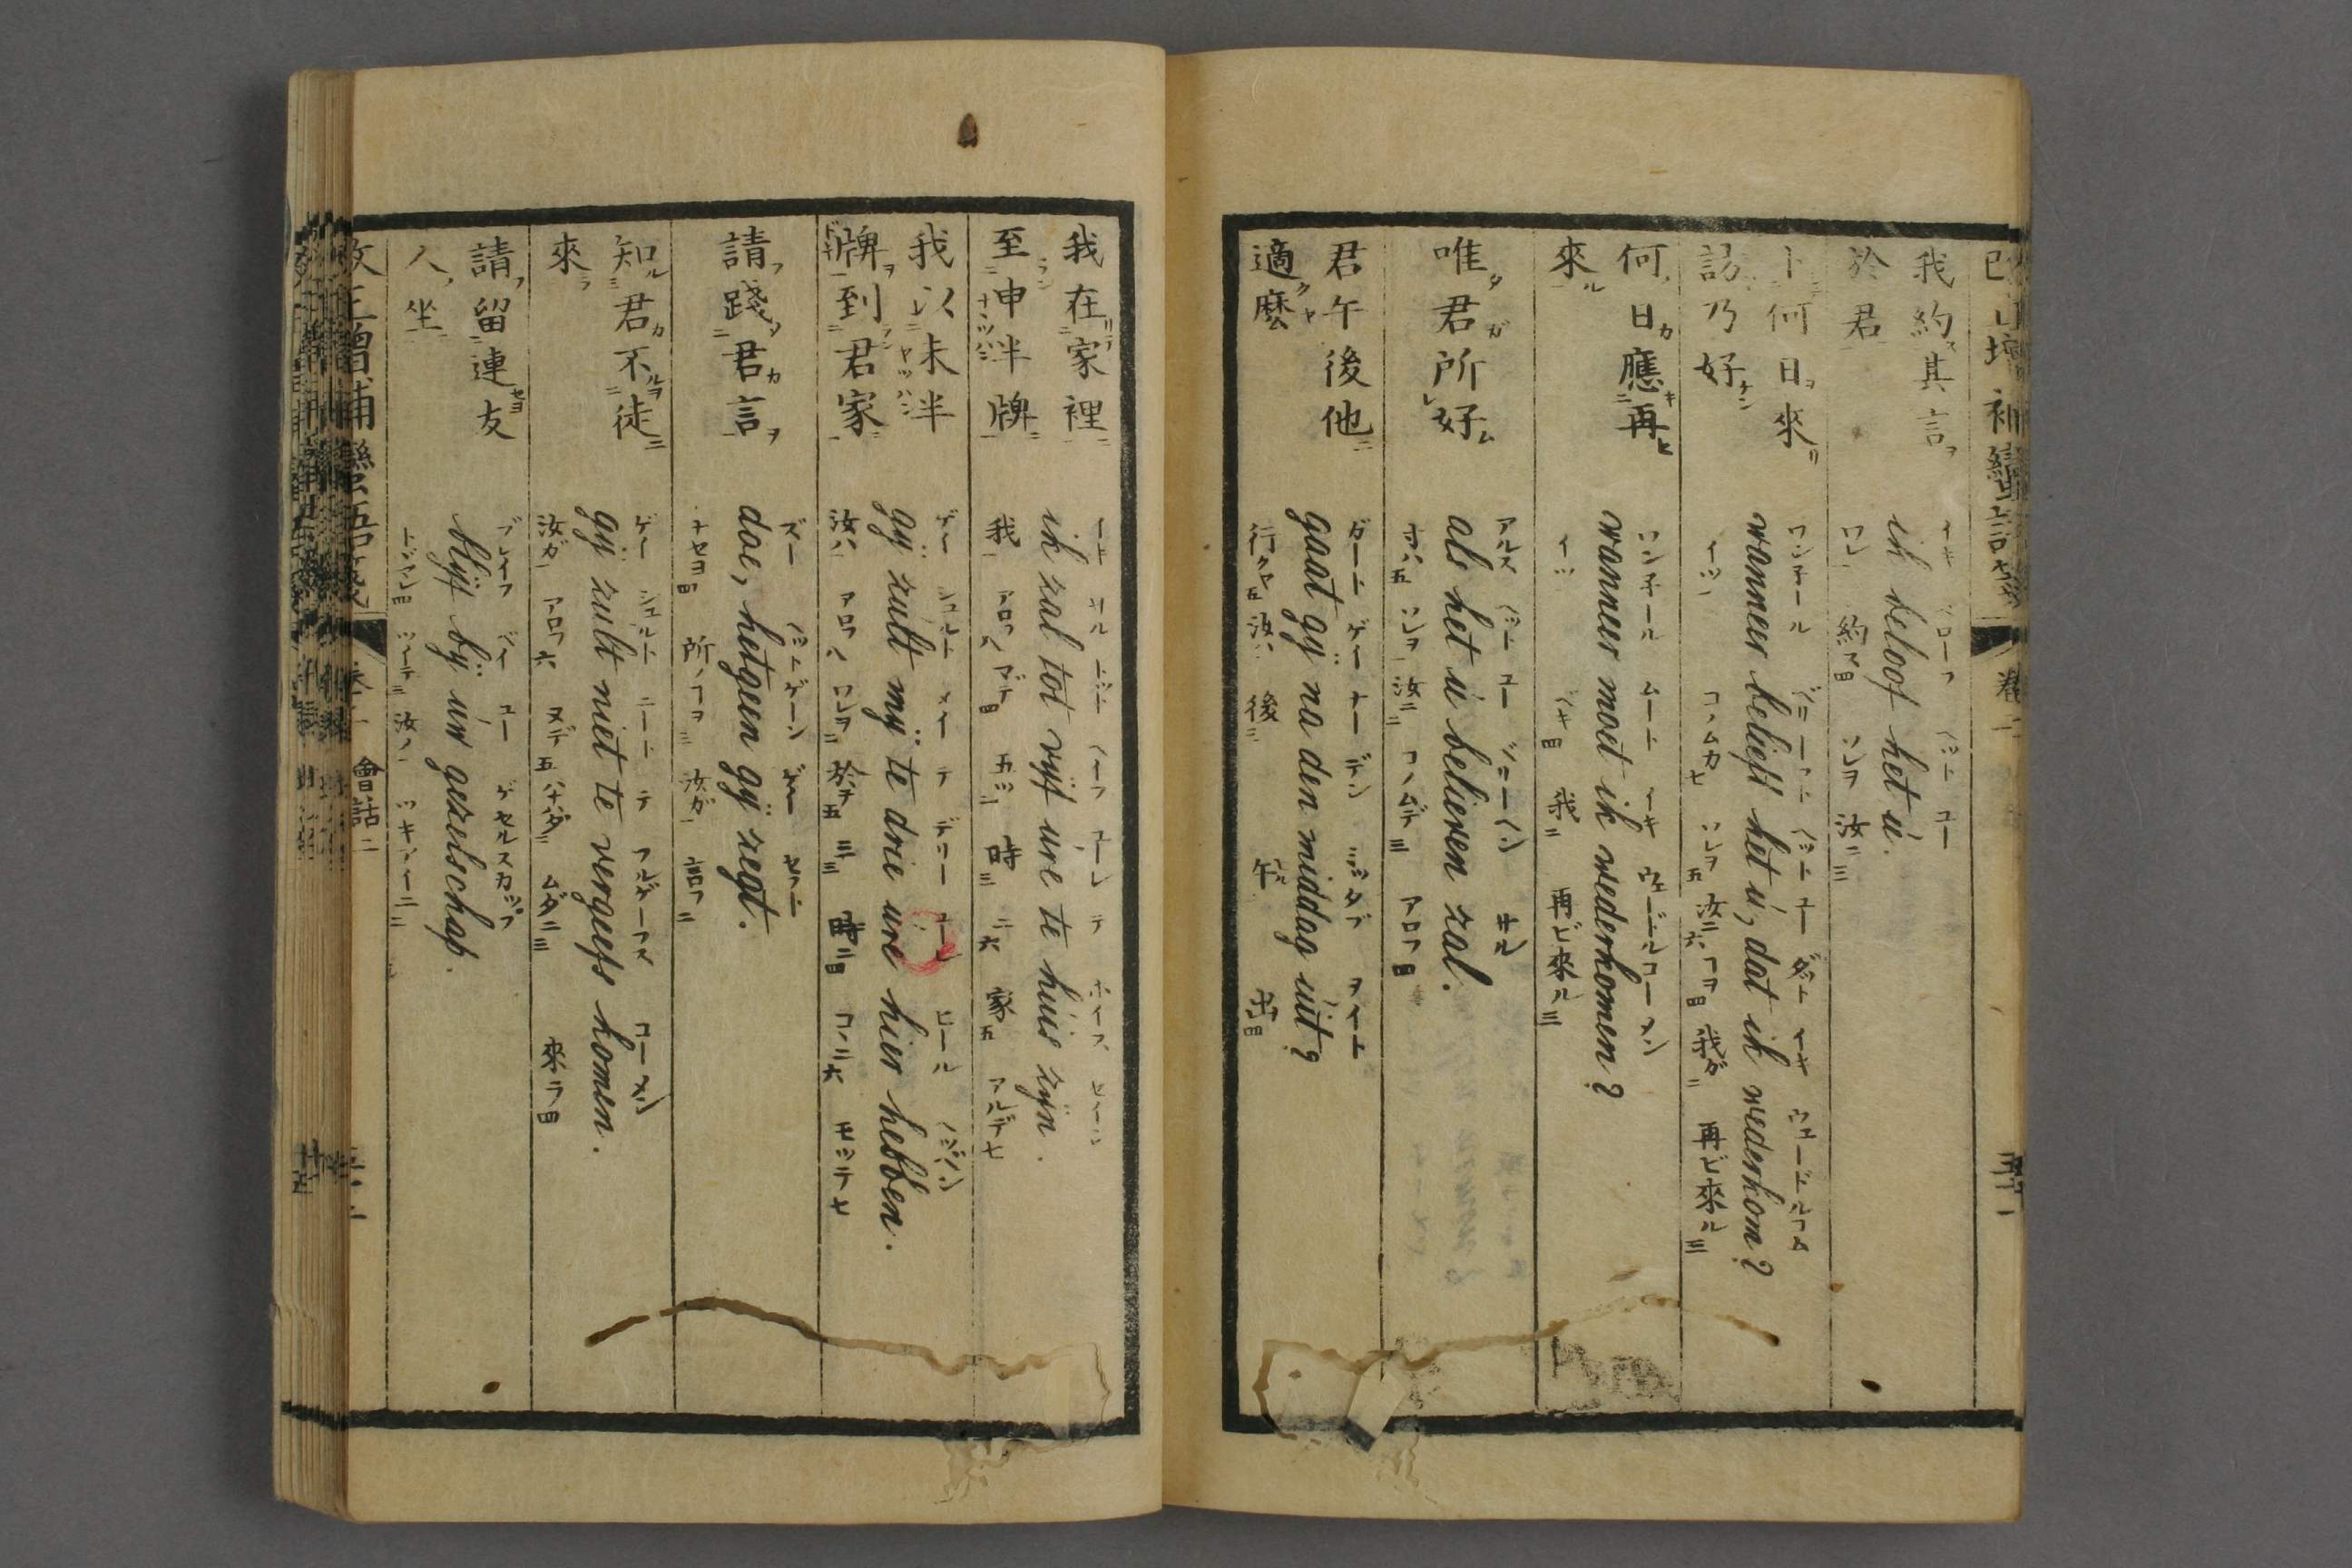 我約其言
於君
イキ ベローフ ヘット ユー
ik beloof het u.
ワレ一 約ス四 ソレヲ 汝ニ三
卜何日來
訪乃好
ワン子ール ベリーフト ヘット ユー ダット イキ ウェードルコム
wanneer belieft het u, dat ik wederkom?
イツ一 コノムカ七 ソレヲ五 汝ニ六 コヲ四 我ガ二 再ビ來ル三
何日應再
來
ワン子ール ムート イキ ウェードルコーメン
wanneer moet ik wederkomen?
イツ 我二 再ビ來ル三
唯君所好
アルス ヘット ユー ベリーヘン サル
als het u believen zal.
ソレヲ一 汝ニ二 コノムデ三 アロフ四
君午後他
適麼
ガート ゲイ ナー デン ミッダフ ヲイト
gaat gÿ na den middag uit?
行クヤ五 汝ハ 後三 午 出四
我在家裡
至申半牌
イキ サル トット ヘイフ ユーレ テ ホイス セイン
ik zal tot vÿf ure te huis zÿn.
我一 アロフ八 マデ四 五ツ二 時三 ニ六 家五 アルデ七
我以未半
牌到君家
ゲー シュルト メイ テ デリー ユーレ ヒール ヘッベン
gÿ zult mÿ te drie ure hier hebben.
汝ハ アロフ八 ワレヲ二 於テ五 三三 時ニ四 コヽニ六 モッテ七
請踐君言
ズー ヘットゲーン ゲイ セフト
doe, hetgeen gÿ zegt.
ナセヨ四 所ノコヲ三 汝ガ一 言フ二
知君不徒
來
ゲー シュルト ニート テ フルゲーフス コーメン
gÿ zult niet te vergeefs komen.
汝ガ一 アロフ六 ヌデ五 ムダニ三 來ラ四
請留連友
人坐
ブレイフ ベイ ユー ゲセルスカップ
blÿf bÿ uw gezelschap.
トヾマレ四 ツイテ三 汝ノ一 ツキアイニ二
改正增補蠻語箋
會話